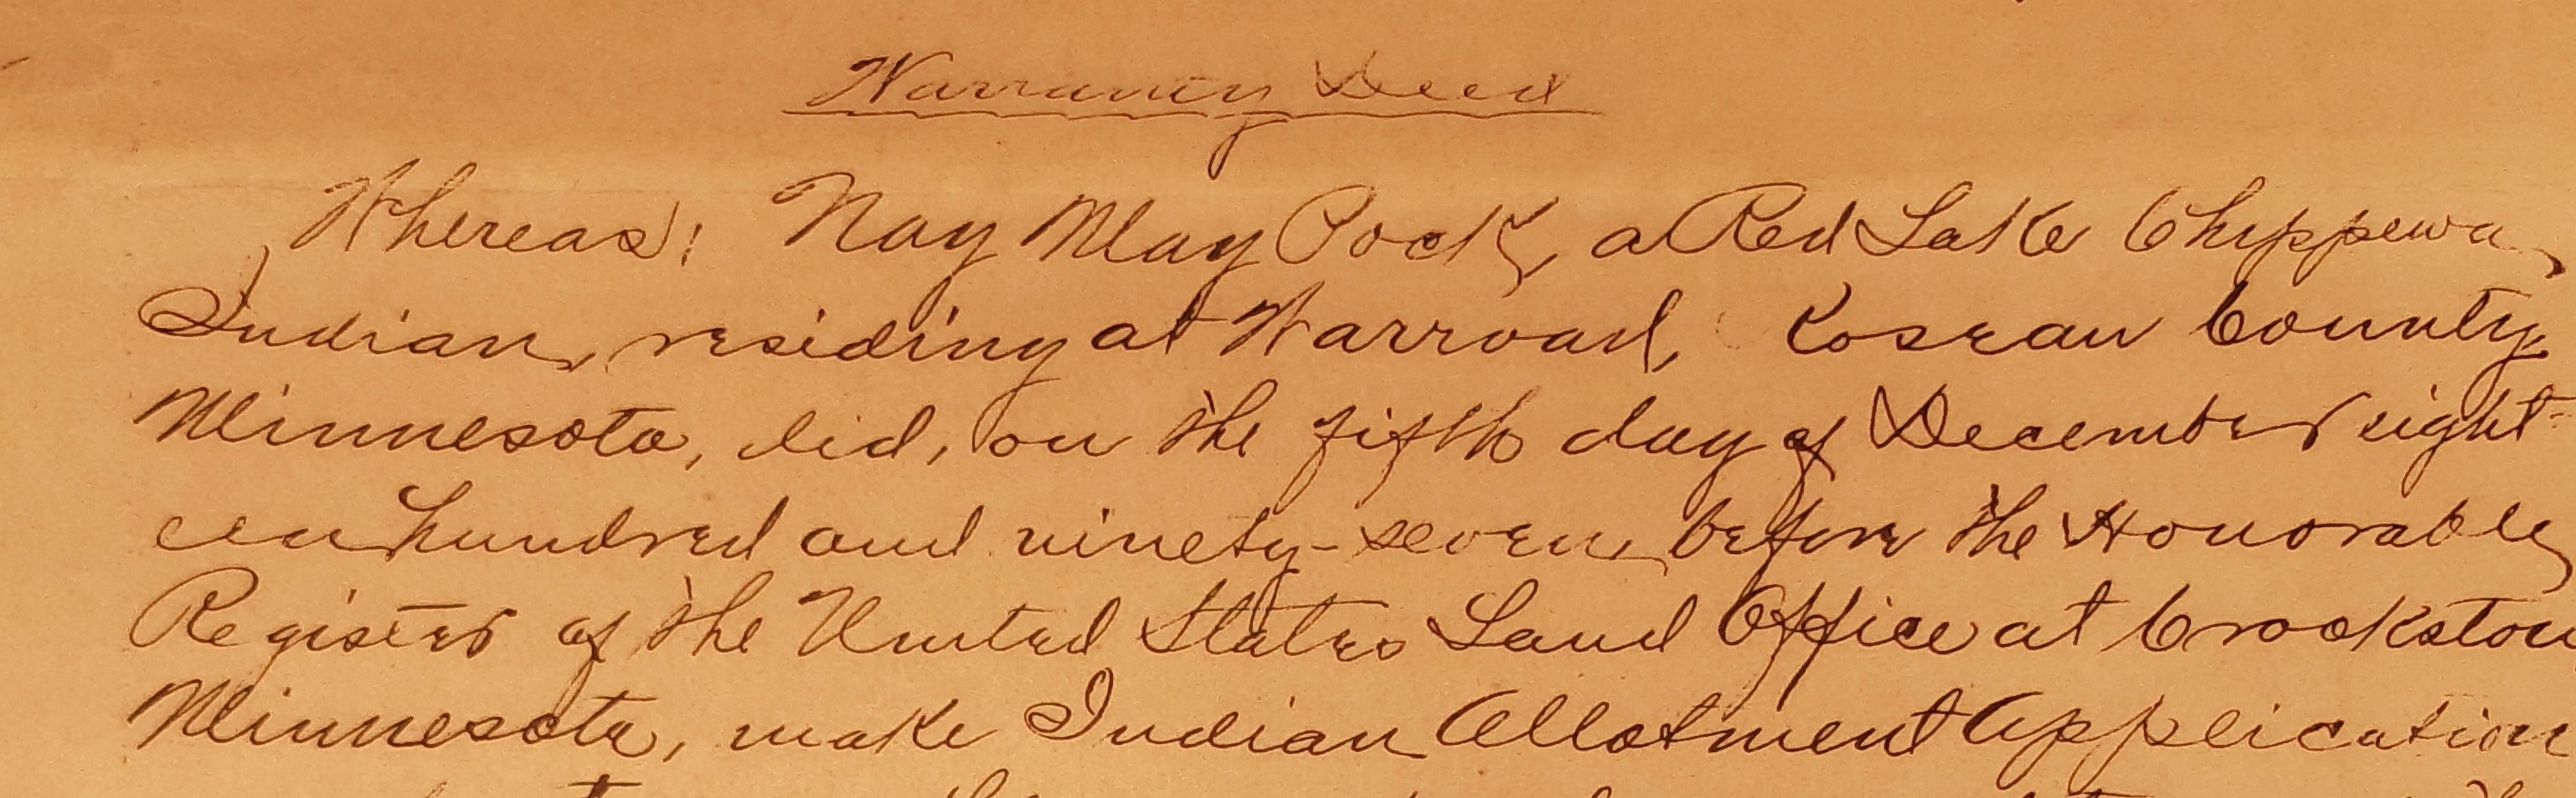 Warranty Deed
Whereas, Nay May Pock, a Red Lake Chippewa
Indian, residing at Warroad, Roseau County,
Minnesota, did, on the fifth day of December eight-
een hundred and ninety-seven, before the Honorable
Register of the United States Land Office at Crookston
Minnesota, make Indian Allotment Application